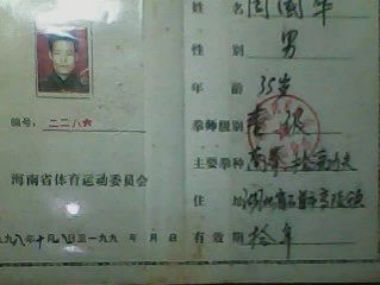 姓 名 周国华
性 别 男
年 龄 35岁
编号：二二八六
拳师级别 壹级
主要拳种 南拳
海南省体育运动委员会
住 址 湖北省石首市
九八年十月 日至一九九 年 月 日
有效期 拾年